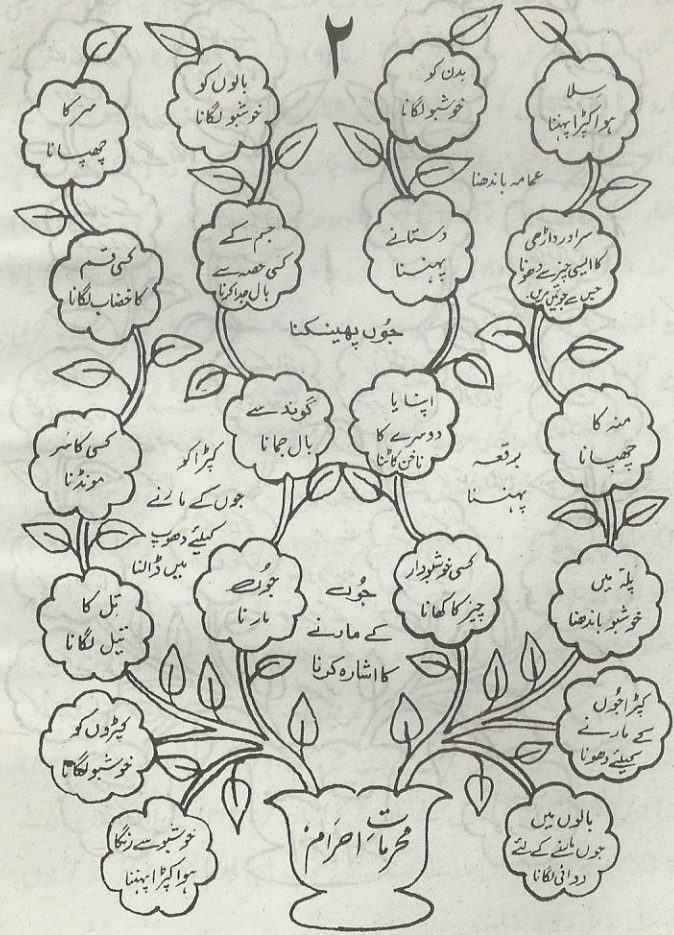 ۲
سلا
ہوا کپڑا پہننا
بدن کو
خوشبو لگانا
بالوں کو
خوشبو لگانا
سر کا
چھپانا
عمامہ باندھنا
سر اور داڑھی
کا ایسی چیز سے دھونا
جس سے جوئیں مریں۔
دستانے
پہننا
جسم کے
کسی حصہ سے
بال جدا کرنا
کسی قسم
کا خضاب لگانا
جُوں پھینکنا
منہ کا
چھپانا
برقعہ
پہننا
اپنا یا
دوسرے کا
ناخن کاٹنا
گوند سے
بال جمانا
کپڑا کو
جوں کے مارنے
کیلئے دھوپ
میں ڈالنا
کسی کا سر
مونڈنا
پلّہ میں
خوشبو باندھنا
کسی خوشبودار
چیز کا کھانا
جُوں
کے مارنے
کا اشارہ کرنا
جُوں
مارنا
تِل کا
تیل لگانا
کپڑا جُوں
کے مارنے
کیلئے دھونا
کپڑوں کو
خوشبو لگانا
بالوں میں
جوں مارنے کے لئے
دوائی لگانا
خوشبو سے رنگا
ہوا کپڑا پہننا
محرماتِ احرام